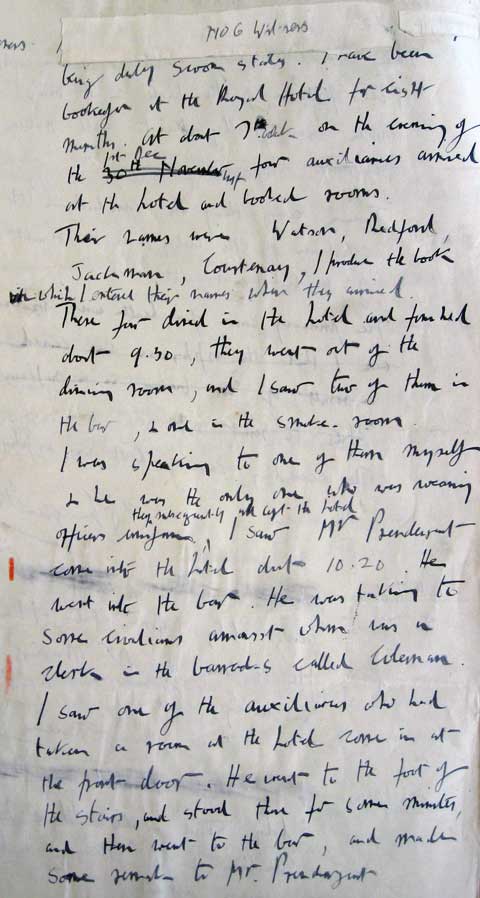 No 6 Witness
being duly sworn states. I have been
bookeeper at the Royal Hotel for eight
months. At about 7 on the evening of
the 1st Dec 30th November last four auxiliaries arrived
at the hotel and booked rooms.
Their names were Watson, Redford,
Jackman, Courtenay, I produce the book
in which I entered their names when they arrived.
These four dined in the Hotel and finished
about 9.30, they went out of the
dining room, and I saw two of them in
the bar, & one in the smoke-room.
I was speaking to one of them myself
& he was the only one who was wearing
they subsequently all left the hotel
officers uniform, I saw Mr Prendergast
come into the hotel about 10.20. He
went into the bar. He was talking to
some civilians amongst whom was a
clerk in the barracks called Coleman.
I saw one of the auxiliaries who had
taken a room at the hotel come in at
the front door. He went to the foot of
the stairs, and stood there for some minutes,
and then went to the bar, and made
some remark to Mr. Prendergast